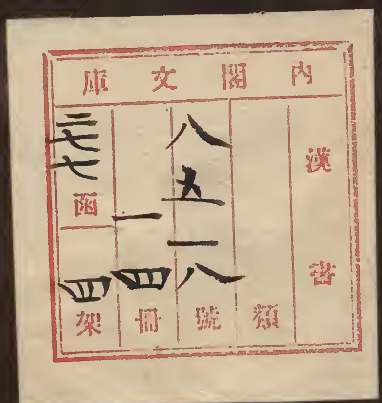 內閣文庫
漢書
類
八五一八號
一四冊
三七七函
四架